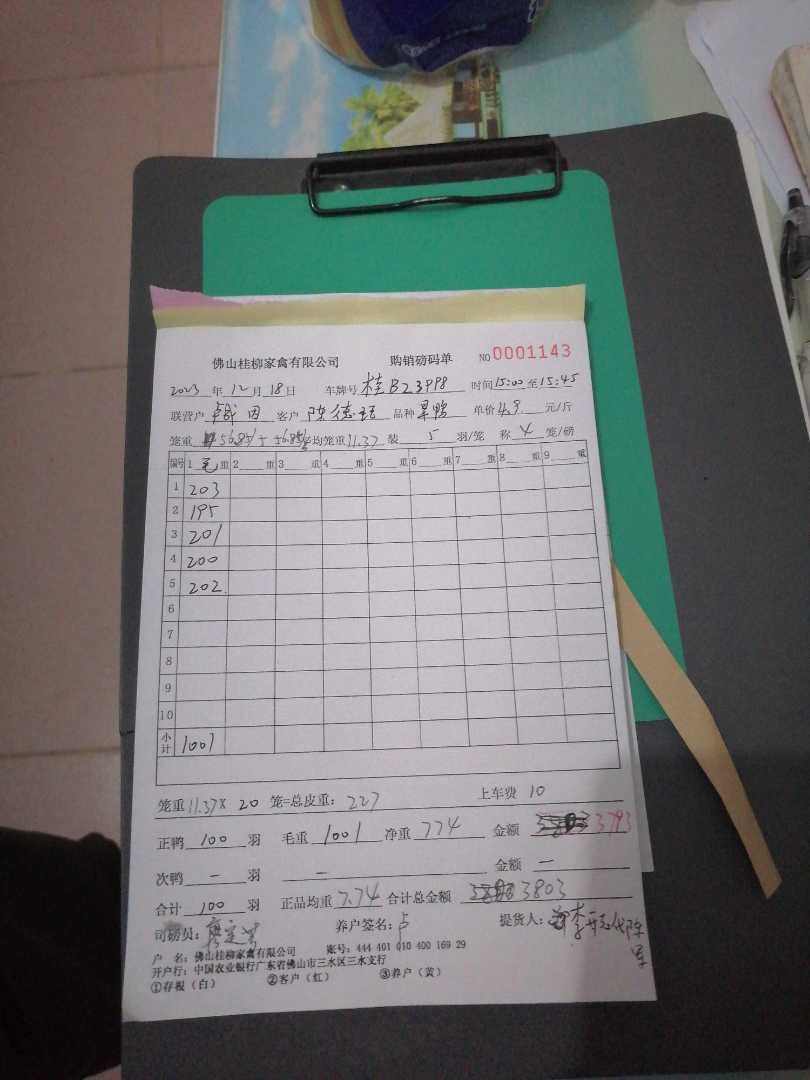 佛山桂柳家禽有限公司 购销磅码单 NO 0001143
2023年12月18日 车牌号 桂B23998 时间15:00至15:45
联营户 客户 陈德 品种 单价4.9元/斤
笼重 56.85 56.85 平均笼重11.37 装5羽/笼 称4笼/磅
编号 1毛重 2重 3重 4重 5重 6重 7重 8重 9重
1 203
2 195
3 201
4 200
5 202
6
7
8
9
10
小计 1001
笼重11.37×20笼=总皮重:227 上车费 10
正鸭100羽 毛重1001净重774 金额 3793
次鸭—羽 — 金额—
合计100羽 正品均重7.74合计总金额 3803
司磅员: 养户签名: 提货人:
户 名:佛山桂柳家禽有限公司 账号:444 401 010 400 169 29
开户行:中国农业银行广东省佛山市三水区三水支行
①存根(白) ②客户(红) ③养户(黄)